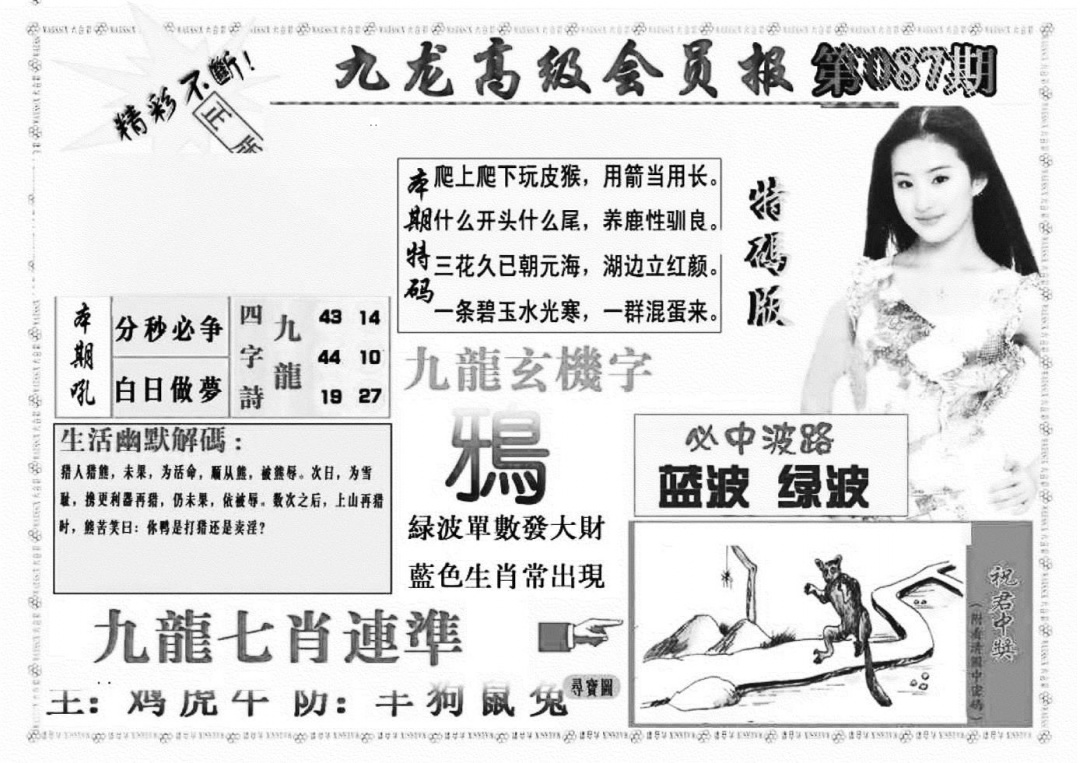 精彩不斷!
正版
九龙高级会员报
第087期
本期特码
爬上爬下玩皮猴，用箭当用长。
什么开头什么尾，养鹿性驯良。
三花久已朝元海，湖边立红颜。
一条碧玉水光寒，一群混蛋来。
特碼版
本期吼
分秒必争
白日做夢
四字詩
九龍
43 14
44 10
19 27
九龍玄機字
鴉
緑波單數發大財
藍色生肖常出現
必中波路
蓝波 绿波
生活幽默解碼：
猎人猎熊，未果，为活命，顺从熊，被熊辱。次日，为雪
耻，携更利器再猎，仍未果，依被辱。数次之后，上山再猎
时，熊苦笑曰：你鸭是打猎还是卖淫？
九龍七肖連準
主：鸡虎牛 防：羊狗鼠兔
尋寶圖
祝君中奖
（附看清圖中密碼）